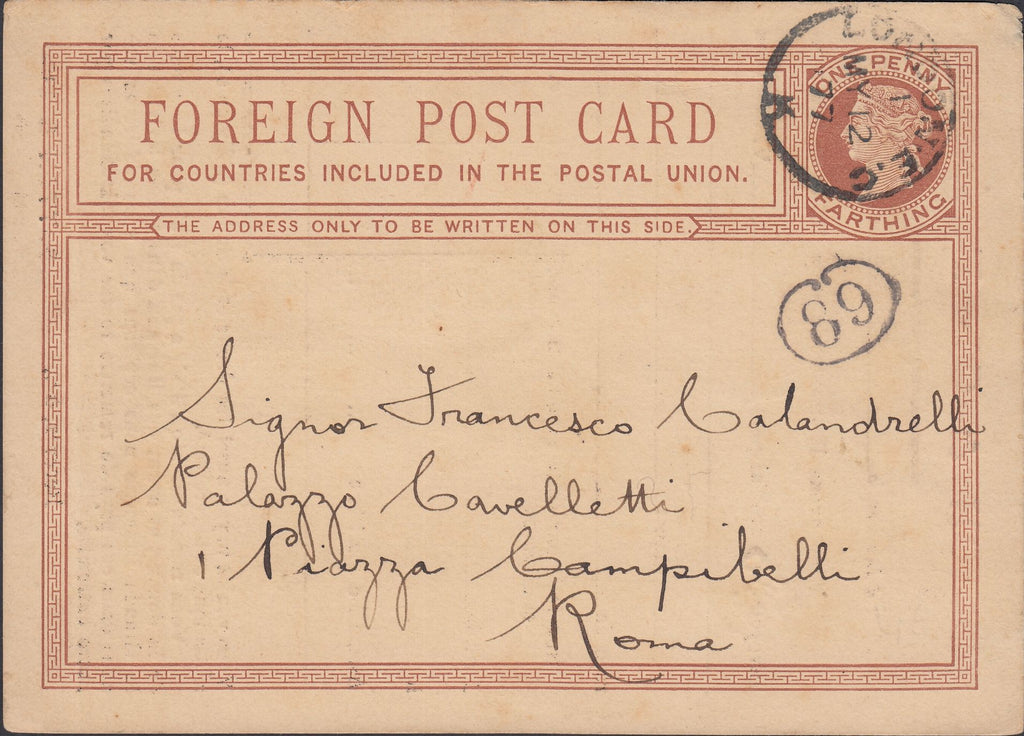 FOREIGN POST CARD
FOR COUNTRIES INCLUDED IN THE POSTAL UNION.
THE ADDRESS ONLY TO BE WRITTEN ON THIS SIDE.
ONE PENNY
FARTHING
K
MY 12
E.C
89
Signor Francesco Calandrelli
Palazzo Cavelletti
1 Piazza Campibelli
Roma